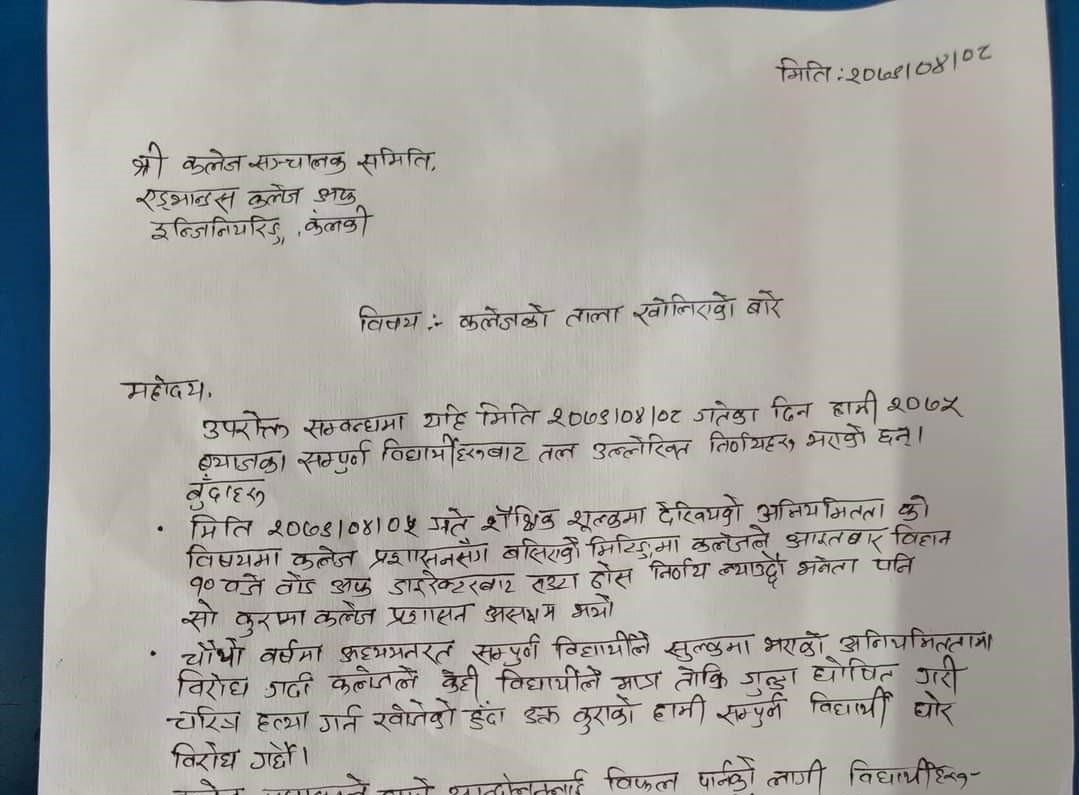 मिति : २०७९।०४।०८
श्री कलेज सञ्चालक समिति,
एड्भान्स कलेज अफ
इन्जिनियरिङ्ग, कंलकी
विषय :- कलेजको ताला खोलिएको बारे
महोदय,
उपरोक्त सम्वन्धमा यहि मिति २०७९।०४।०८ गतेका दिन हामी २०७५
ब्याजका सम्पुर्ण विद्यार्थीहरुबाट तल उल्लेखित निर्णयहरु भएको छन्।
बुँदाहरु
• मिति २०७९।०४।०५ गते शैक्षिक शूल्कमा देखियको अनियमितता को
विषयमा कलेज प्रशासनसँग बसिएको मिटिङ्गमा कलेजले आइतबार विहान
१० वजे वोर्ड अफ डाइरेक्टरबाट ठोस निर्णय ल्याउछौ भनेता पनि
सो कुरामा कलेज प्रशासन असक्षम भयो
• चौथो वर्षमा अध्ययनरत सम्पुर्ण विद्यार्थीले सुल्कमा भएको अनियमिततामा
विरोध गर्दा कलेजले केही विद्यार्थीले मात्र तोकि गुन्डा घोषित गरी
चरित्र हत्या गर्न खोजेको हुँदा उक्त कुराको हामी सम्पुर्ण विद्यार्थी घोर
विरोध गर्छौ।
विफल पार्नको लागी विद्यार्थीहरु-